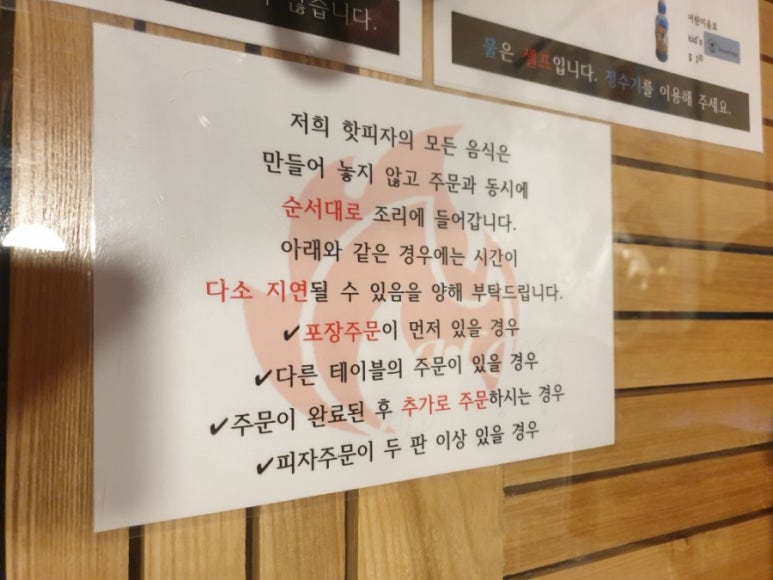 않습니다.
어린이음료
kid's
물은 셀프입니다. 정수기를 이용해 주세요.
저희 핫피자의 모든 음식은
만들어 놓지 않고 주문과 동시에
순서대로 조리에 들어갑니다.
아래와 같은 경우에는 시간이
다소 지연될 수 있음을 양해 부탁드립니다.
✔포장주문이 먼저 있을 경우
✔다른 테이블의 주문이 있을 경우
✔주문이 완료된 후 추가로 주문하시는 경우
✔피자주문이 두 판 이상 있을 경우